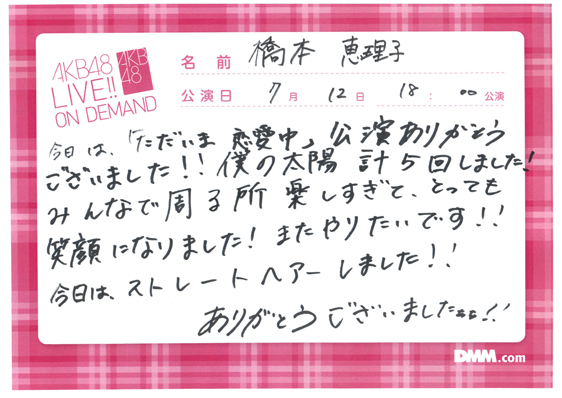 AKB48
LIVE!!
ON DEMAND
AKB
48
名前 橋本 恵理子
公演日 7月 12日 18:00公演
今日は、「ただいま 恋愛中」公演ありがとう
ございました!!僕の太陽 計5回しました!
みんなで周る所 楽しすぎて、とっても
笑顔になりました!またやりたいです!!
今日は、ストレートヘアーしました!!
ありがとうございましたぁぁ!!
DMM.com